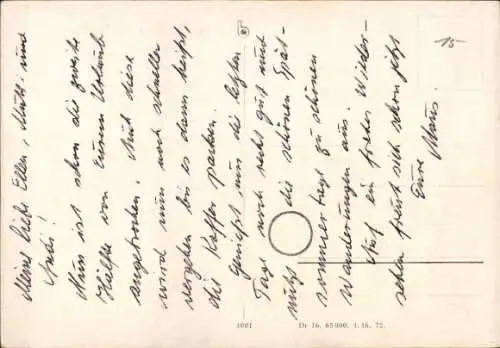 Meine liebe Ellen, Mutti und
Nun ist schon die zweite
Hälfte von Eurem Urlaub
angebrochen. Auch diese
wird nun noch schneller
vergehen bis es dann heißt,
die Koffer packen.
Genießt nun die letzten
Tage noch recht gut und
nutzt die schönen Spät-
sommertage zu schönen
Wanderungen aus.
Auf ein frohes Wieder-
sehen freut sich schon jetzt
Eure
15
6001
Dr 16. 65 000. 4. 16. 72.